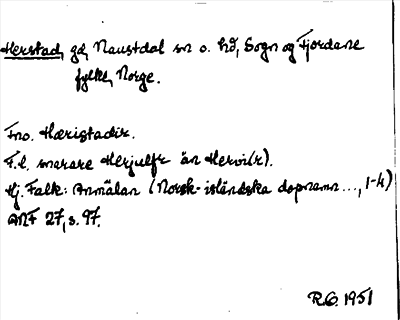 Herstad, gd, Naustdal sn o. hd, Sogn og Fjordane
fylke, Norge.
Fno. Hæristadir.
F.l. snarare Herjulfr än Hervi(r).
Hj. Falk: Anmälan (Norsk-isländska dopnamn ..., 1-4)
ANF 27, s. 97.
R.O. 1951